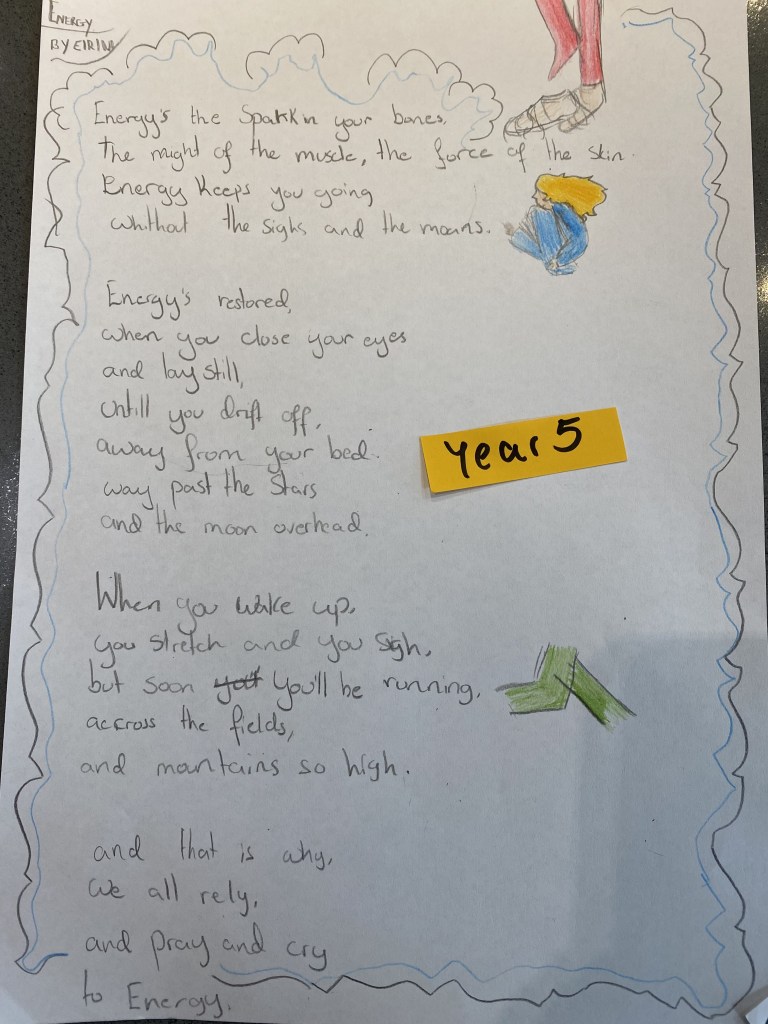 Energy
BY EIRINI
Energy's the Spark in your bones,
The might of the muscle, the force of the skin.
Energy Keeps you going
whithout the sighs and the moans.
Energy's restored,
when you close your eyes
and lay still,
Untill you drift off,
away from your bed.
way past the Stars
and the moon overhead.
When you wake up,
you stretch and you sigh,
but soon you'll be running,
accross the fields,
and mantains so high.
and that is why,
We all rely,
and pray and cry
to Energy.
Year 5